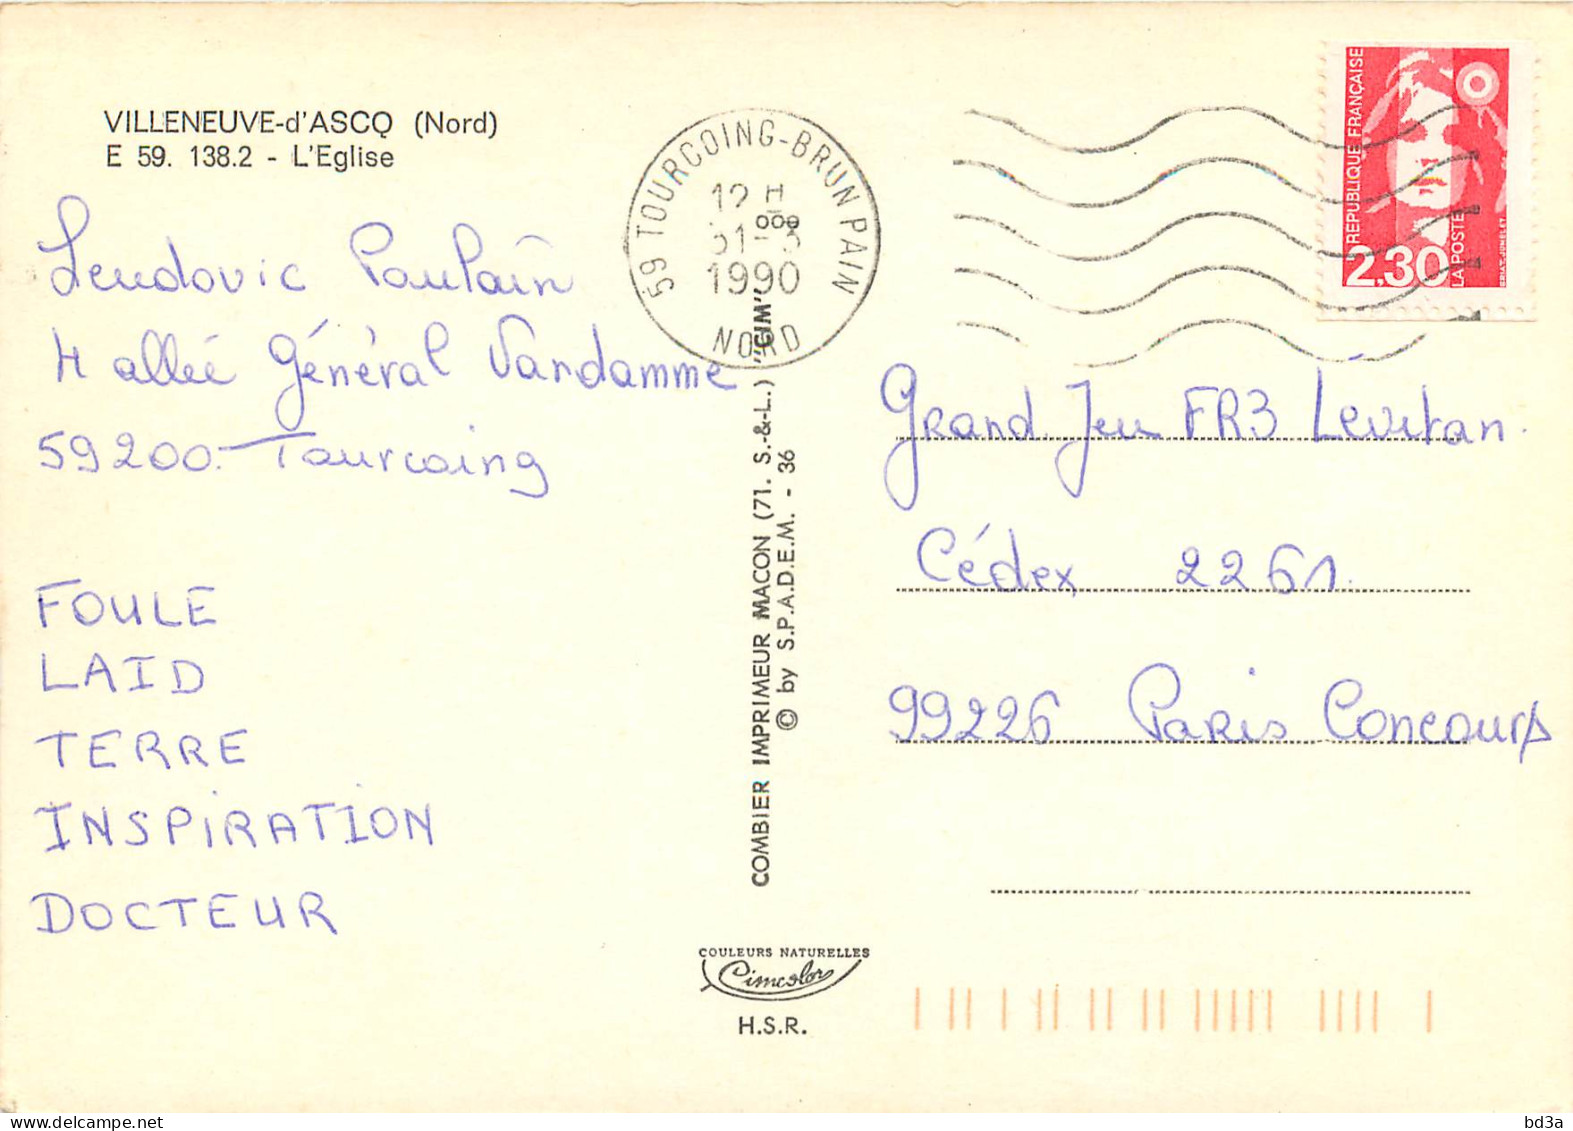 VILLENEUVE-d'ASCQ (Nord)
E 59. 138.2 - L'Eglise
Ludovic Poulain
4 allée Général Vandamme
59200 - Tourcoing
FOULE
LAID
TERRE
INSPIRATION
DOCTEUR
59 TOURCOING-BRUN PAIN
12 H
1990
NORD
COMBIER IMPRIMEUR MACON (71. S.-&-L.) "CIM"
© by S.P.A.D.E.M. - 36
COULEURS NATURELLES
Cimcolor
H.S.R.
REPUBLIQUE FRANÇAISE
2,30
LA POSTE
BRIAT-JUMELET
Grand Jeu FR3 Lévitan.
Cédex 2261.
99226 Paris Concours
bd3a